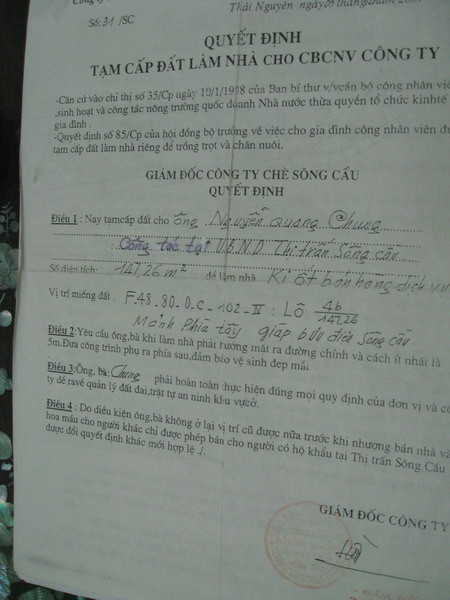 Công ty
Thái Nguyên ngày 05 tháng
Số: 31 /SC
QUYẾT ĐỊNH
TẠM CẤP ĐẤT LÀM NHÀ CHO CBCNV CÔNG TY
-Căn cứ vào chỉ thị số 35/Cp ngày 10/1/1988 của Ban bí thư v/v cán bộ công nhân viên
,sinh hoạt và công tác nông trường quốc doanh Nhà nước thừa quyền tổ chức kinh tế
gia đình .
-Quyết định số 85/Cp của hội đồng bộ trưởng về việc cho gia đình công nhân viên đư
tạm cấp đất làm nhà riêng để trồng trọt và chăn nuôi.
GIÁM ĐỐC CÔNG TY CHÈ SÔNG CẦU
QUYẾT ĐỊNH
Điều 1 : Nay tạmcấp đất cho ông Nguyễn Quang Chung
: Công tác tại U.B.N.D Thị trấn Sông cầu
Số diện tích: 147,26 m² để làm nhà Ki ốt bán hàng dịch vụ
Vị trí miếng đất . F48-80-D-C-102-IV : Lô 4b/147,26
Mảnh Phía tây giáp bưu điện Sông cầu.
Điều 2:Yêu cầu ông,bà khi làm nhà phải hướng mắt ra đường chính và cách ít nhất là
5m.Đưa công trình phụ ra phía sau,đảm bảo vệ sinh đẹp mắt.
Điều 3:Ông, bà: Chung phải hoàn toàn thực hiện đúng mọi quy định của đơn vị và cô
ty đề ra về quản lý đất đai,trật tự an ninh khu vực ở.
Điều 4 : Do điều kiện ông,bà không ở lại vị trí cũ được nữa trước khi nhượng bán nhà và
hoa mầu cho người khác chỉ được phép bán cho người có hộ khẩu tại Thị trấn Sông Cầu
được đổi quyết định khác mới hợp lệ ./.
GIÁM ĐỐC CÔNG TY